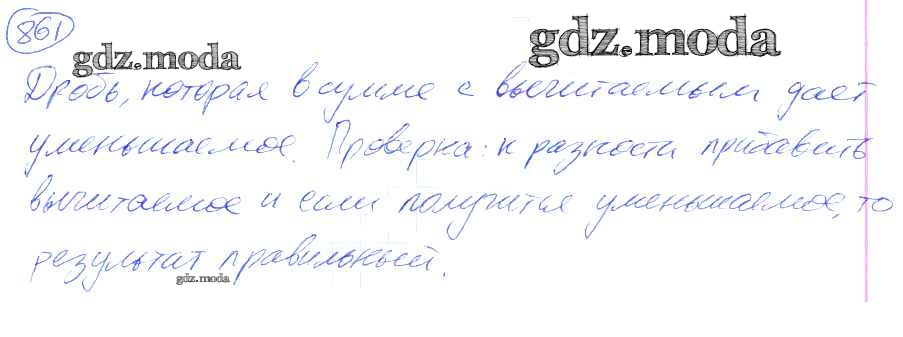 861
gdz.moda gdz.moda
Дробь, которая в сумме с вычитаемым дает
уменьшаемое. Проверка: к разности прибавить
вычитаемое и если получится уменьшаемое, то
результат правильный.
gdz.moda